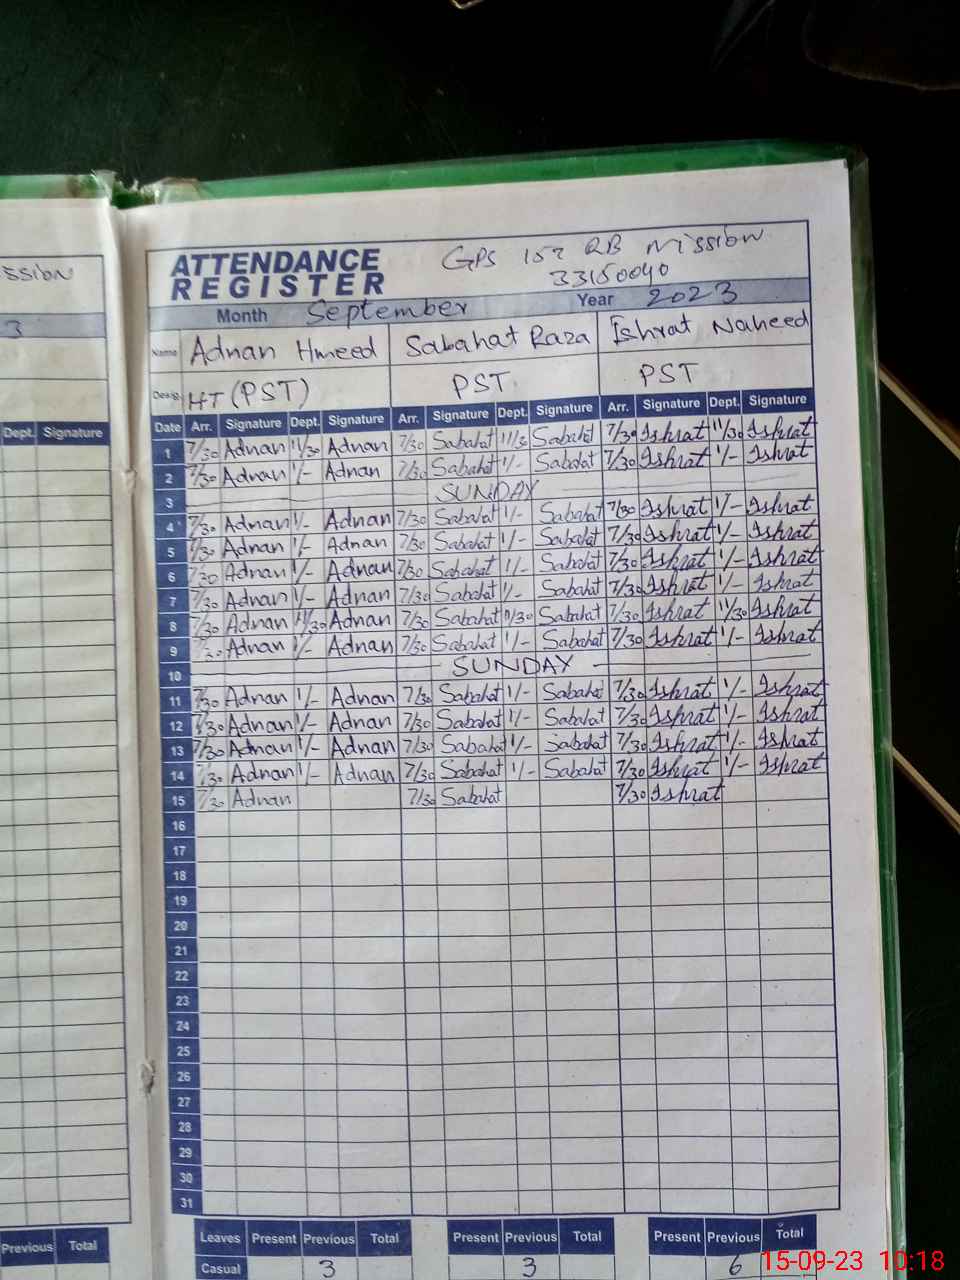 ssion
3
Dept. Signature
Previous Total
ATTENDANCE REGISTER
GPS 152 RB Mission
33150040
Month September Year 2023
Name Adnan Hmeed Sabahat Raza Ishrat Naheed
Desig. HT (PST) PST PST
Date Arr. Signature Dept. Signature Arr. Signature Dept. Signature Arr. Signature Dept. Signature
1 7/30 Adnan 11/30 Adnan 7/30 Sabahat 11/30 Sabahat 7/30 Ishrat 11/30 Ishrat
2 7/30 Adnan 1/- Adnan 7/30 Sabahat 1/- Sabahat 7/30 Ishrat 1/- Ishrat
3 SUNDAY
4 7/30 Adnan 1/- Adnan 7/30 Sabahat 1/- Sabahat 7/30 Ishrat 1/- Ishrat
5 7/30 Adnan 1/- Adnan 7/30 Sabahat 1/- Sabahat 7/30 Ishrat 1/- Ishrat
6 7/30 Adnan 1/- Adnan 7/30 Sabahat 1/- Sabahat 7/30 Ishrat 1/- Ishrat
7 7/30 Adnan 1/- Adnan 7/30 Sabahat 1/- Sabahat 7/30 Ishrat 1/- Ishrat
8 7/30 Adnan 11/30 Adnan 7/30 Sabahat 11/30 Sabahat 7/30 Ishrat 11/30 Ishrat
9 7/30 Adnan 1/- Adnan 7/30 Sabahat 1/- Sabahat 7/30 Ishrat 1/- Ishrat
10 SUNDAY
11 7/30 Adnan 1/- Adnan 7/30 Sabahat 1/- Sabahat 7/30 Ishrat 1/- Ishrat
12 7/30 Adnan 1/- Adnan 7/30 Sabahat 1/- Sabahat 7/30 Ishrat 1/- Ishrat
13 7/30 Adnan 1/- Adnan 7/30 Sabahat 1/- Sabahat 7/30 Ishrat 1/- Ishrat
14 7/30 Adnan 1/- Adnan 7/30 Sabahat 1/- Sabahat 7/30 Ishrat 1/- Ishrat
15 7/30 Adnan 7/30 Sabahat 7/30 Ishrat
16
17
18
19
20
21
22
23
24
25
26
27
28
29
30
31
Leaves Present Previous Total Present Previous Total Present Previous Total
Casual 3 3 6
15-09-23 10:18